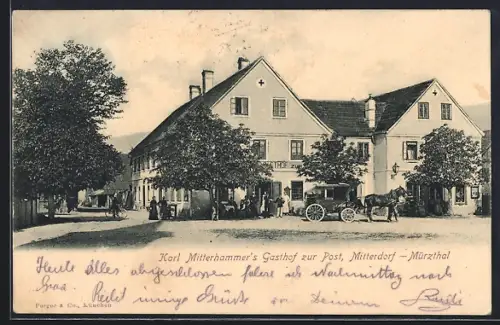 GASTHOF
Karl Mitterhammer's Gasthof zur Post, Mitterdorf – Mürzthal
Heute Alles abgeschlossen fahre ich Nachmittag nach
Graz. Recht innige Grüße von Deinem
Purger & Co., München